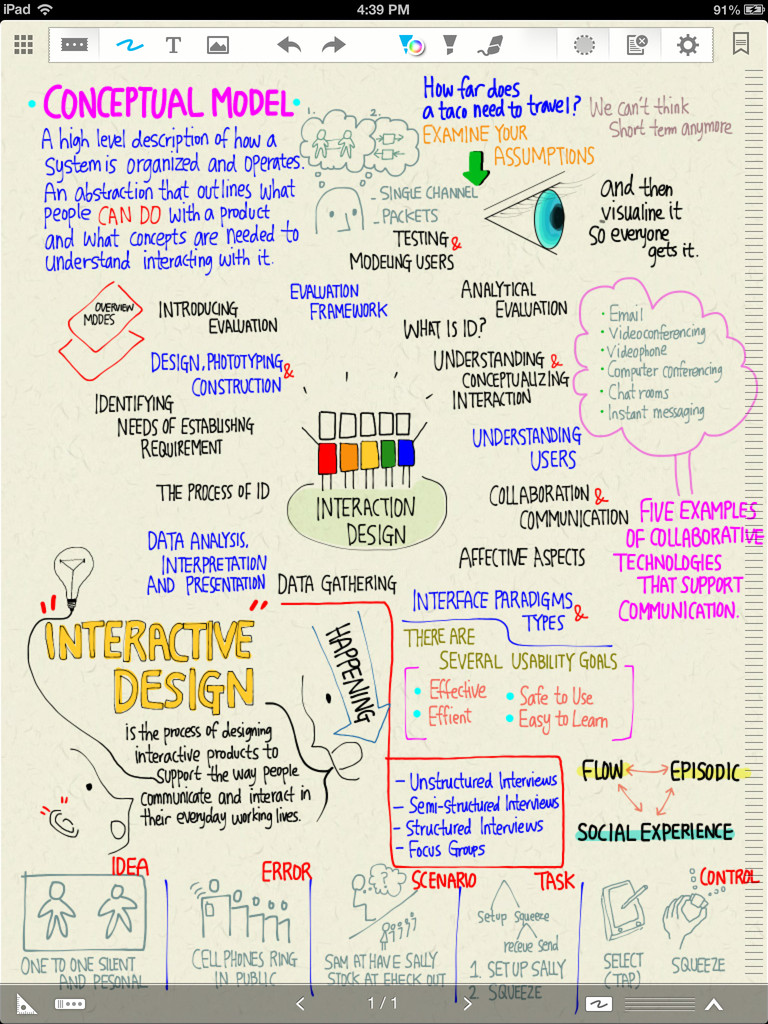 iPad
4:39 PM
91%
T
• CONCEPTUAL MODEL •
A high level description of how a
System is organized and operates.
An abstraction that outlines what
people CAN DO with a product
and what concepts are needed to
understand interacting with it.
1.
2.
- SINGLE CHANNEL
- PACKETS
How far does
a taco need to travel?
EXAMINE YOUR
ASSUMPTIONS
We can't think
Short term anymore
And then
visualine it
So everyone
gets it.
TESTING &
MODELING USERS
OVERVIEW
MODES
INTRODUCING
EVALUATION
EVALUATION
FRAMEWORK
ANALYTICAL
EVALUATION
WHAT IS ID?
DESIGN, PHOTOTYPING &
CONSTRUCTION
UNDERSTANDING &
CONCEPTUALIZING
INTERACTION
IDENTIFYING
NEEDS OF ESTABLISHNG
REQUIREMENT
UNDERSTANDING
USERS
THE PROCESS OF ID
INTERACTION
DESIGN
COLLABORATION &
COMMUNICATION
DATA ANALYSIS,
INTERPRETATION
AND PRESENTATION
DATA GATHERING
AFFECTIVE ASPECTS
INTERFACE PARADIGMS &
TYPES
• Email
• Videoconferencing
• Videophone
• Computer conferencing
• Chat rooms
• Instant messaging
FIVE EXAMPLES
OF COLLABORATIVE
TECHNOLOGIES
THAT SUPPORT
COMMUNICATION.
"INTERACTIVE"
DESIGN
is the process of designing
interactive products to
support the way people
communicate and interact in
their everyday working lives.
HAPPENING
THERE ARE
SEVERAL USABILITY GOALS
• Effective
• Effient
• Safe to Use
• Easy to Learn
- Unstructured Interviews
- Semi-structured Interviews
- Structured Interviews
- Focus Groups
FLOW
EPISODIC
SOCIAL EXPERIENCE
IDEA
ONE TO ONE SILENT
AND PESONAL
ERROR
CELL PHONES RING
IN PUBLIC
SCENARIO
SAM AT HAVE SALLY
STOCK AT EHECK OUT
TASK
Setup Squeeze
receive Send
1. SET UP SALLY
2 SQUEEZE
CONTROL
SELECT
(TAP)
SQUEEZE
1 / 1